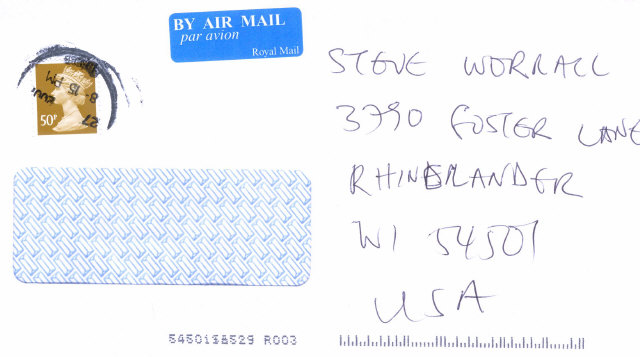 BY AIR MAIL
par avion
Royal Mail
50P
8-15 PM
27
STEVE WORRALL
3790 FOSTER LANE
RHINELANDER
WI 54501
USA
R003